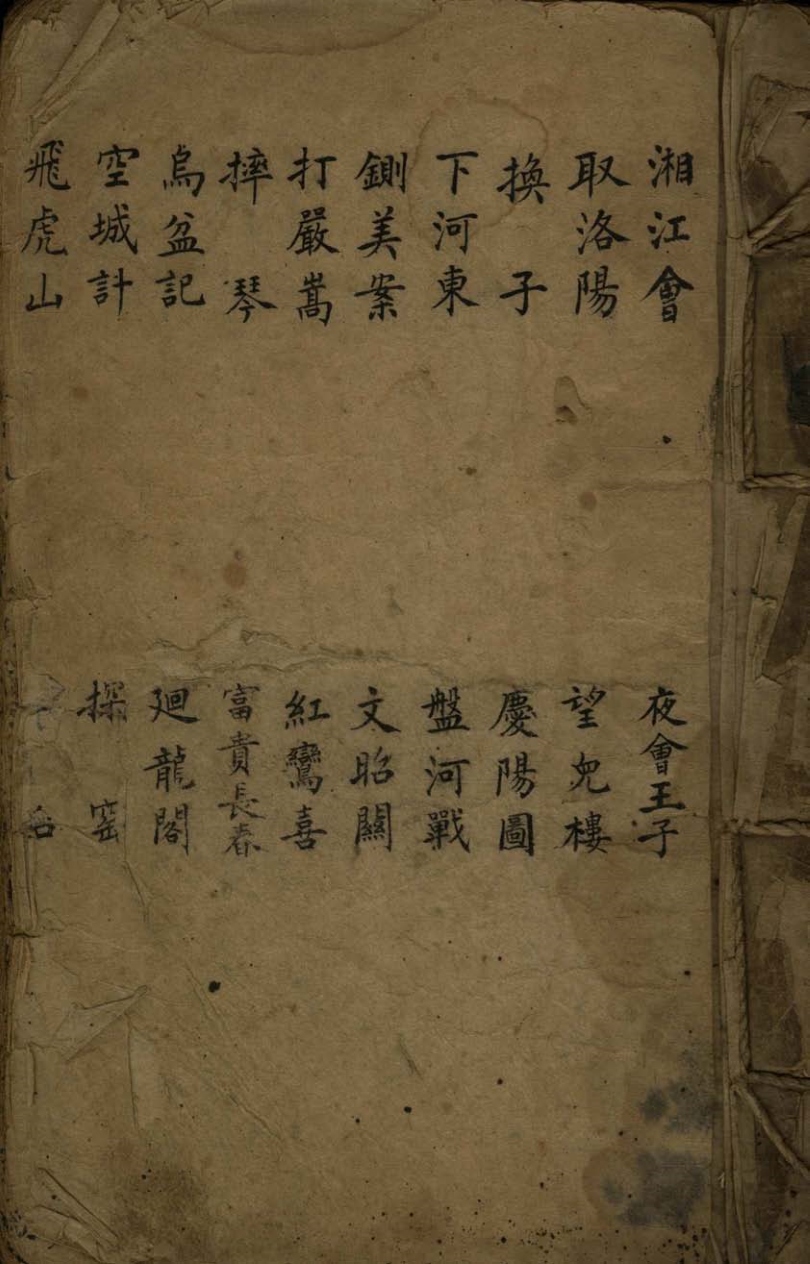 湘江會
取洛陽
換子
下河東
鍘美案
打嚴嵩
摔琴
烏盆記
空城計
飛虎山
夜會王子
望兒樓
慶陽圖
盤河戰
文昭關
紅鸞喜
富貴長春
廻龍閣
探窑
台